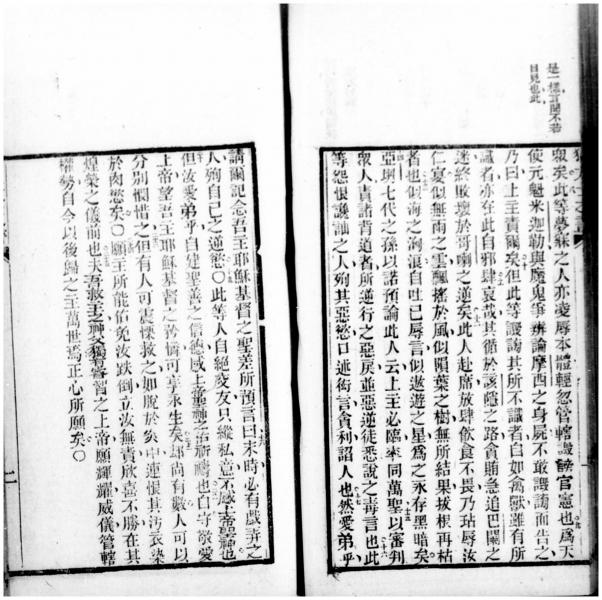 是一樣言聞不若
目見也此
衆矣此等夢寐之人亦凌辱本體輕忽管轄譏謗官憲也爲天
使元魁米迦勒與魔鬼爭辨論摩西之身屍不敢譏謗而告之
乃曰上主責爾矣但此等譏謗其所不識者自如禽獸雖有所
識者亦在此自邪肆哀哉其循於該隱之路貪賄急追巴闌之
迷終敗壞於哥喇之逆矣此人赴席放肆飲食不畏乃玷辱汝
仁宴似無雨之雲飄搖於風似隕葉之樹無所結果拔根再枯
者也似海之洶浪自吐己辱言似遨遊之星爲之永存黑暗矣
亞坍七代之孫以諾預論此人云上主必臨率同萬聖以審判
衆人責諸背道者所逆行之惡戾並惡逆徒悉說之毒言也此
等怨恨譏訕之人殉其惡慾口述衒言貪利諂人也然愛弟乎
請爾記念吾主耶穌基督之聖差所預言曰末時必有戲弄之
人殉自己之逆慾〇此等人自絕友只縱私意不感上帝聖神也
但汝愛弟乎自建聖善之信德感上帝聖神之祈禱也自守敬愛
上帝望吾主耶穌基督之矜憐可享永生矣却尚有數人可以
分別憫惜之但有人可震慄救之如脫於炎中連恨其污衣染
於肉慾矣〇願主所能佑免汝跌倒立汝無責欣喜不勝在其
煌榮之儀前也夫吾救主神父獨睿智之上帝願輝耀威儀管轄
權勢自今以後歸之至萬世焉正心所願矣〇